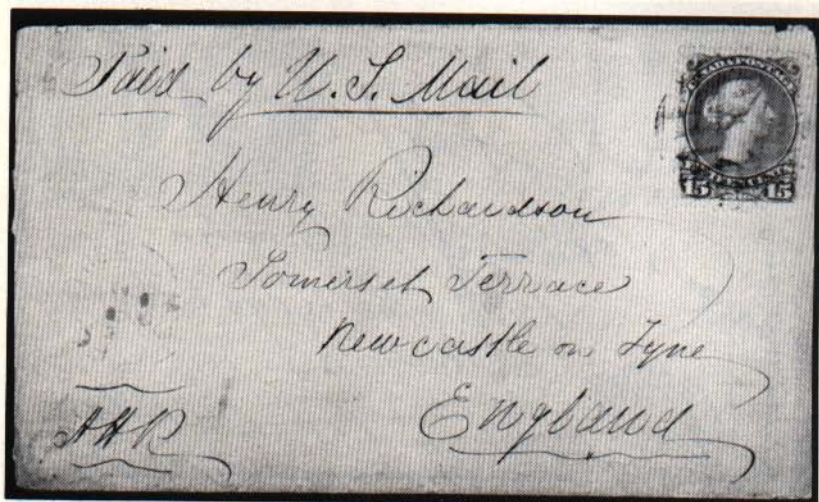 Paid by U.S. Mail
CANADA POSTAGE
15 15
Henry Richardson
Somerset Terrace
Newcastle on Tyne
England
AHR